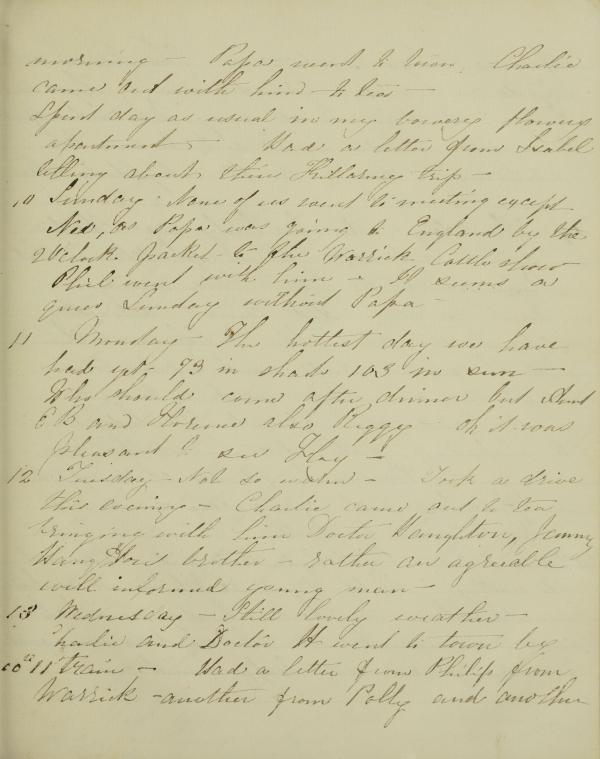 morning - Papa went to town, Charlie
came out with him to tea -
Spent day as usual in my bowery flowery
apartment - Had a letter from Isabel
telling about their Killarney trip -
10 Sunday - None of us went to meeting except
Ned, as Papa was going to England by the
2 O'clock packet - to the Warrick Cattle show
Phil went with him - It seems a
queer Sunday without Papa -
11 Monday - The hottest day we have
had yet - 93 in shade 103 in sun -
Who should come after dinner but Aunt
E B and Florence also Reggy - oh it was
pleasant to see Flory -
12 Tuesday - Not so warm - Took a drive
this evening - Charlie came out to tea
bringing with him Doctor Haughton, Jenny
Haughton's brother - rather an agreeable
well informed young man
13 Wednesday - Still lovely weather -
Charlie and Doctor H went to town by
11 train - Had a letter from Philip from
Warrick - another from Polly and another